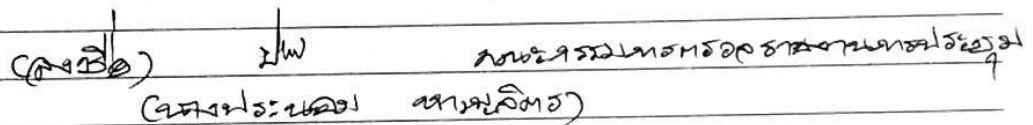 (ลงชื่อ) ปน คณะกรรมการตรวจรายงานการประชุม
(นางประนอม